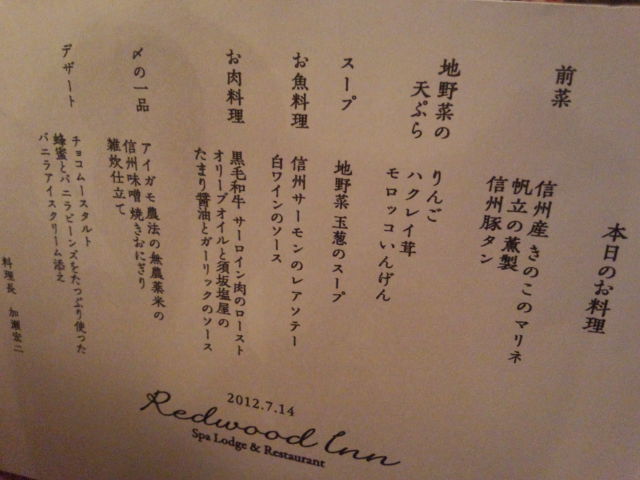 本日のお料理
前菜
信州産 きのこのマリネ
帆立の薫製
信州豚タン
地野菜の
天ぷら
りんご
ハクレイ茸
モロッコいんげん
スープ
地野菜 玉葱のスープ
お魚料理
信州サーモンのレアソテー
白ワインのソース
お肉料理
黒毛和牛 サーロイン肉のロースト
オリーブオイルと須坂塩屋の
たまり醤油とガーリックのソース
〆の一品
アイガモ農法の無農薬米の
信州味噌 焼きおにぎり
雑炊仕立て
デザート
チョコムースタルト
蜂蜜とバニラビーンズをたっぷり使った
バニラアイスクリーム添え
料理長 加瀬宏二
2012.7.14
Redwood Inn
Spa Lodge & Restaurant